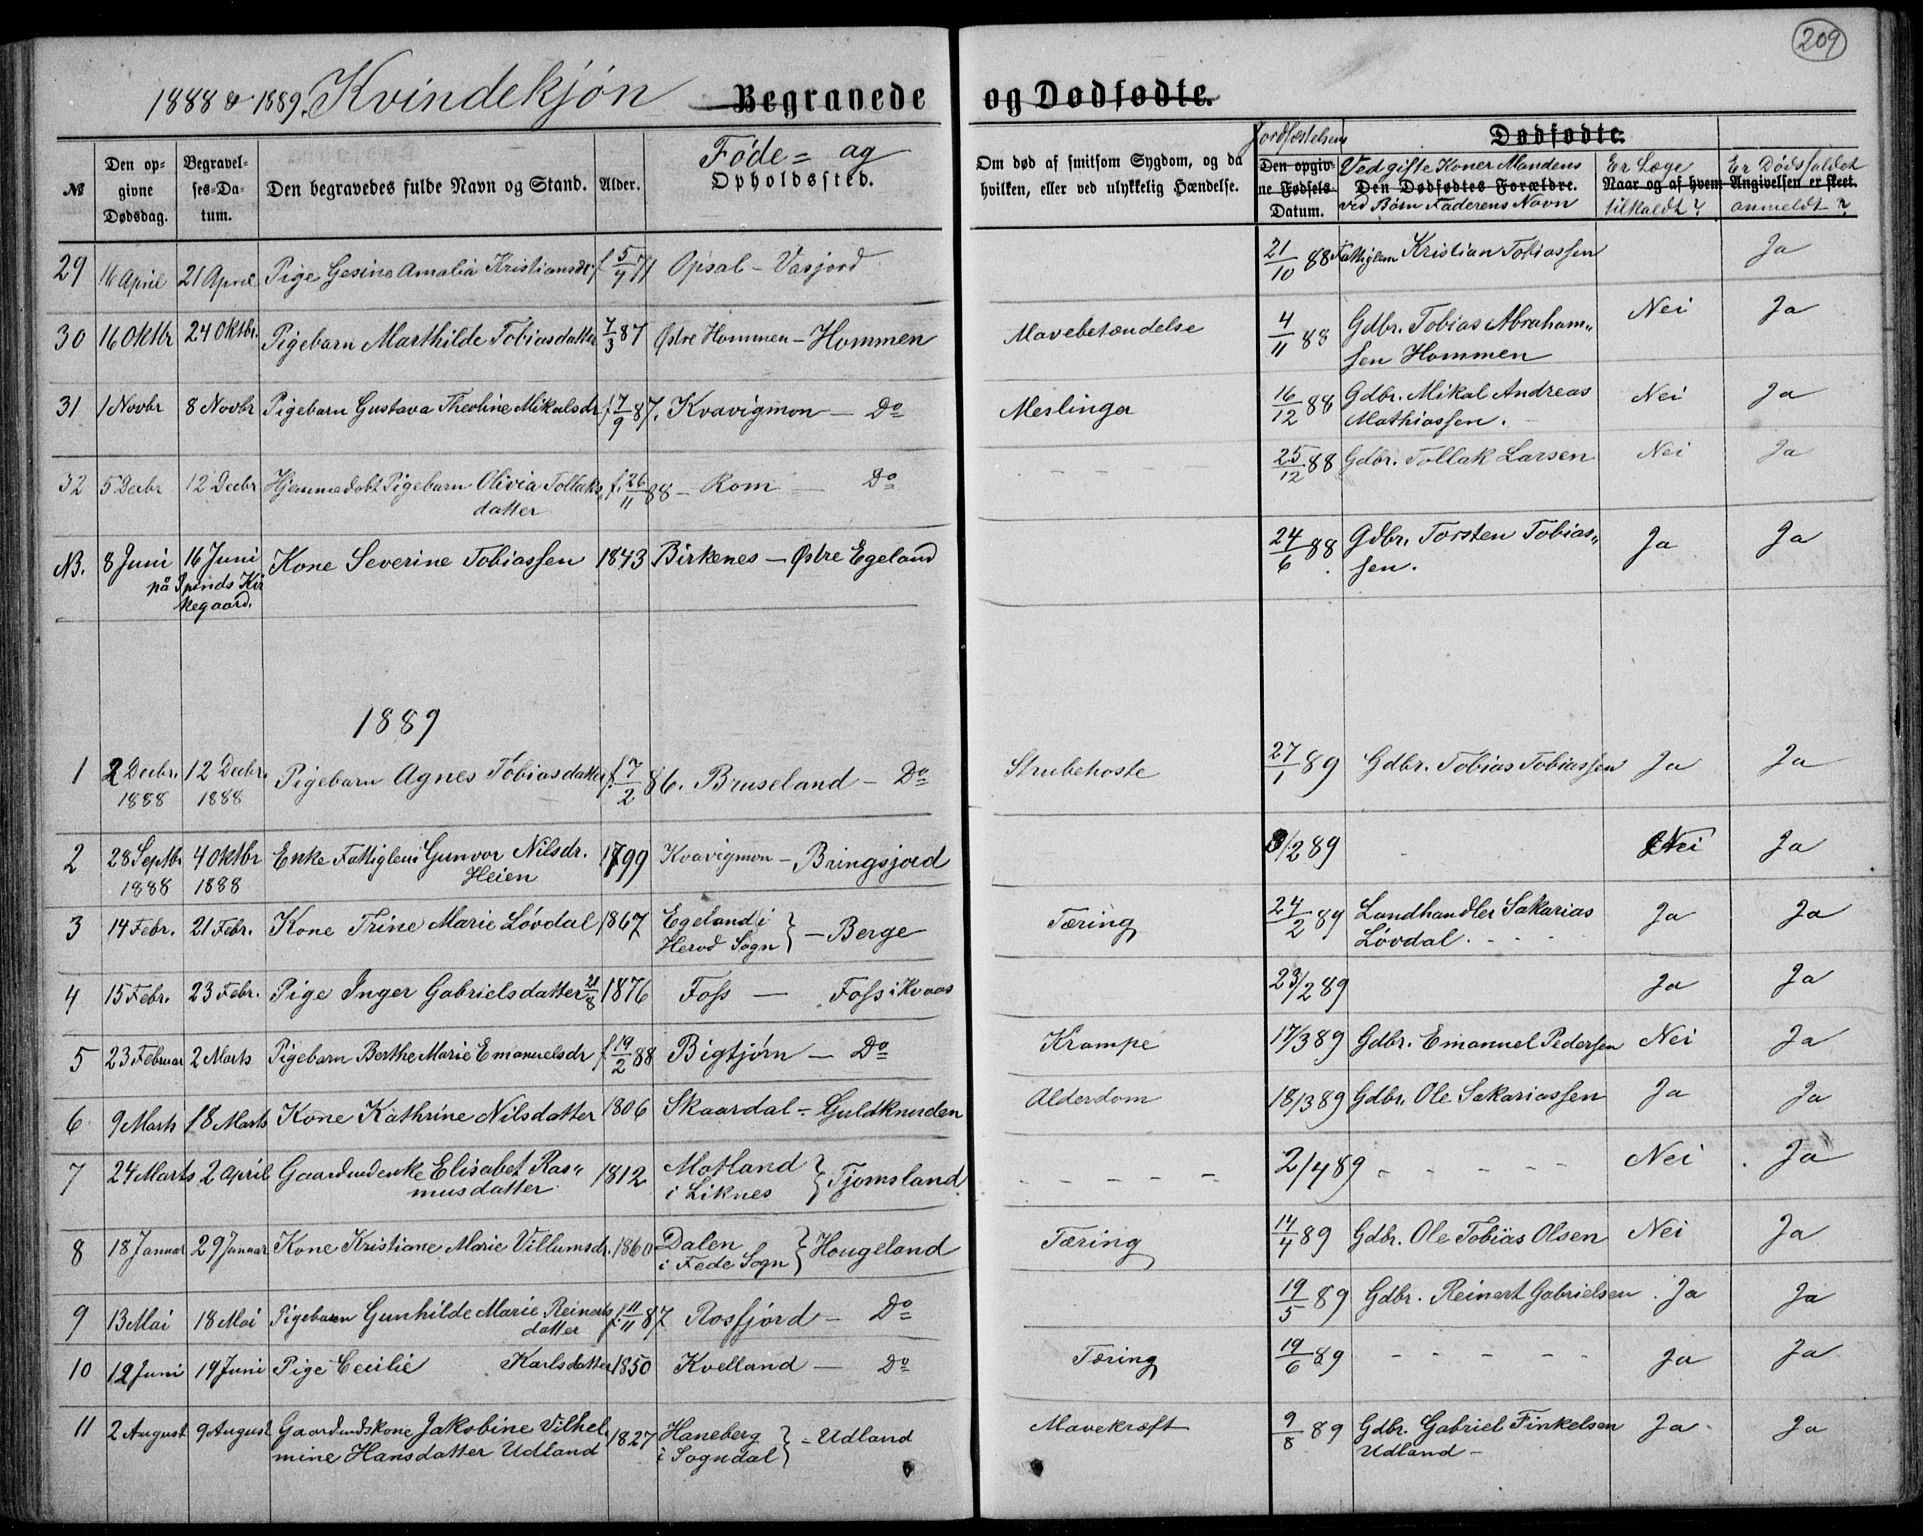 209
1888 & 1889. Kvindekjön Begravede og Dødfødte.
№ Den opgivne Dødsdag. Begravelses-Datum. Den begravedes fulde Navn og Stand. Alder. Føde= og Opholdssted. Om død af smitsom Sygdom, og da hvilken, eller ved ulykkelig Hændelse. Jordfæstelsens Den opgivne Fødsels-Datum. Dødfødte. Ved gifte Koner Mandens Den Dødfødtes Forældre. ved Børn Faderens Navn Er Læge Naar og af hvem tilkaldt? Er Dødsfaldet Angivelsen er skeet. anmeldt?
29 16 April 21 April Pige Gesine Amalia Kristiansdr. f 5/4 71 Opsal - Vasjord 21/10 88 Fattiglem Kristian Tobiassen Ja
30 16 Oktbr 24 Oktbr. Pigebarn Marthilde Tobiasdatter 7/3 87 Østre Hommen - Hommen Mavebetændelse 4/11 88 Gdbr. Tobias Abraham„ Nei Ja
sen Hommen
31 1 Novbr 8 Novbr Pigebarn Gustava Theoline Mikalsdr f 7/9 87. Kvavigmon - Do Meslinger 16/12 88 Gdbr. Mikal Andreas Nei Ja
Mathiassen.
32 5 Decbr 12 Decbr Hjemmedøbt Pigebarn Olivia Tollaks f. 26/11 88 - Rom - Do - - - - 25/12 88 Gdbr. Tollak Larsen Nei Ja
datter
NB. 8 Juni 16 Juni Kone Severine Tobiassen 1843 Birkenes - Østre Egeland 24/6 88 Gdbr. Torsten Tobias„ Ja Ja
på Spinds Kir sen.
kegaard.
1889
1 2 Decbr. 12 Decbr. Pigebarn Agnes Tobiasdatter f. 7/2 86. Bruseland - Do Strubehoste 27/1 89 Gdbr. Tobias Tobiassen Ja Ja
1888 1888
2 28 Septbr 4 Oktbr Enke Fattiglem Gunvor Nilsdr. 1799 Kvavigmon - Bringsjord 3/2 89 - Nei Ja
1888 1888 Heien
3 14 Febr. 21 Febr. Kone Trine Marie Lövdal 1867 Egeland i } - Berge Tæring 24/2 89 Landhandler Sakarias Ja Ja
Herod Sogn Lövdal. - - -
4 15 Febr. 23 Febr. Pige Inger Gabrielsdatter 21/8 1876 Foss - Foss i Kvaas 23/2 89 Ja Ja
5 23 Februar 2 Marts Pigebarn Berthe Marie Emanuelsdr f 19/2 88 Bigtjörn - Do Krampe 17/3 89 Gdbr. Emanuel Pedersen Nei Ja
6 9 Marts 18 Marts Kone Kathrine Nilsdatter 1806 Skaardal - Guldknuden Alderdom 18/3 89 Gdbr. Ole Sakariassen Ja Ja
7 24 Marts 2 April Gaardmdenke Elisabet Ras„ 1812 Motland } Tjomsland - - - - - 2/4 89 - - - - - Nei Ja
musdatter i Liknes
8 18 Januar 29 Januar Kone Kristiane Marie Villumsdr. 1860 Dalen } Hougeland Tæring 14/4 89 Gdbr. Ole Tobias Olsen Nei Ja
i Fede Sogn
9 13 Mai 18 Mai Pigebarn Gunhilde Marie Reinerts f. 11/11 87 Rosfjörd - Do 19/5 89 Gdbr. Reinert Gabrielsen. Ja Ja
datter
10 12 Juni 19 Juni Pige Cecilie Karlsdatter 1850 Kvelland - Do Tæring 19/6 89 - - - - - Ja Ja
11 2 August 9 August Gaardmdskone Jakobine Vilhel 1827 Haneberg } - Udland Mavekræft 9/8 89 Gdbr. Gabriel Finkelsen Ja Ja
mine Hansdatter Udland i Sogndal Udland -